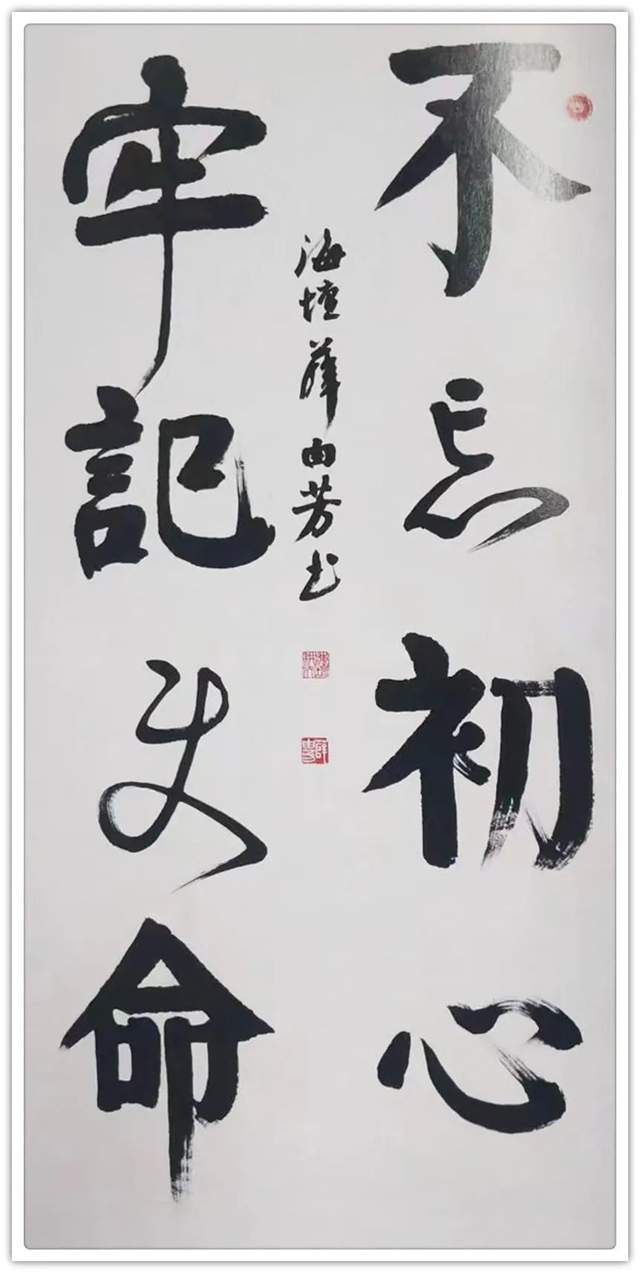 不忘初心
牢記使命
海壇薛由芳书